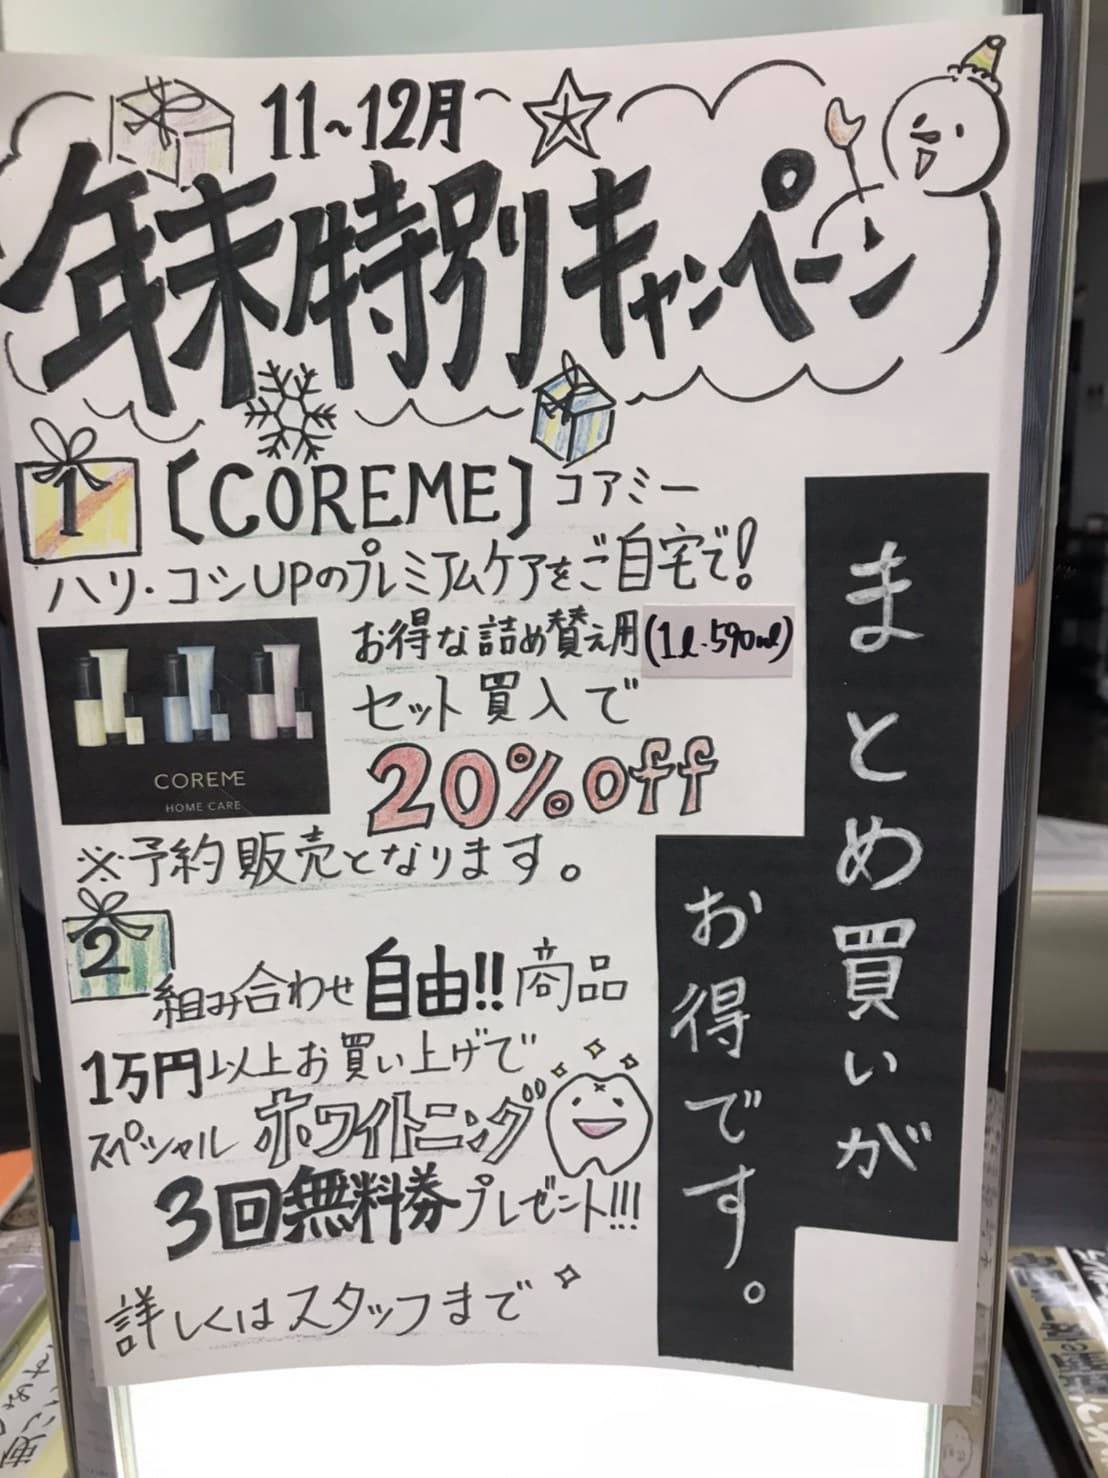 11~12月
年末特別キャンペーン
1 [COREME] コアミー
ハリ・コシUPのプレミアムケアをご自宅で!
お得な詰め替え用(1ℓ・590ml)
セット買入で
20%off
COREME
HOME CARE
※予約販売となります。
2
組み合わせ自由!!商品
1万円以上お買い上げで
スペシャルホワイトニング
3回無料券プレゼント!!!
詳しくはスタッフまで
まとめ買いが
お得です。